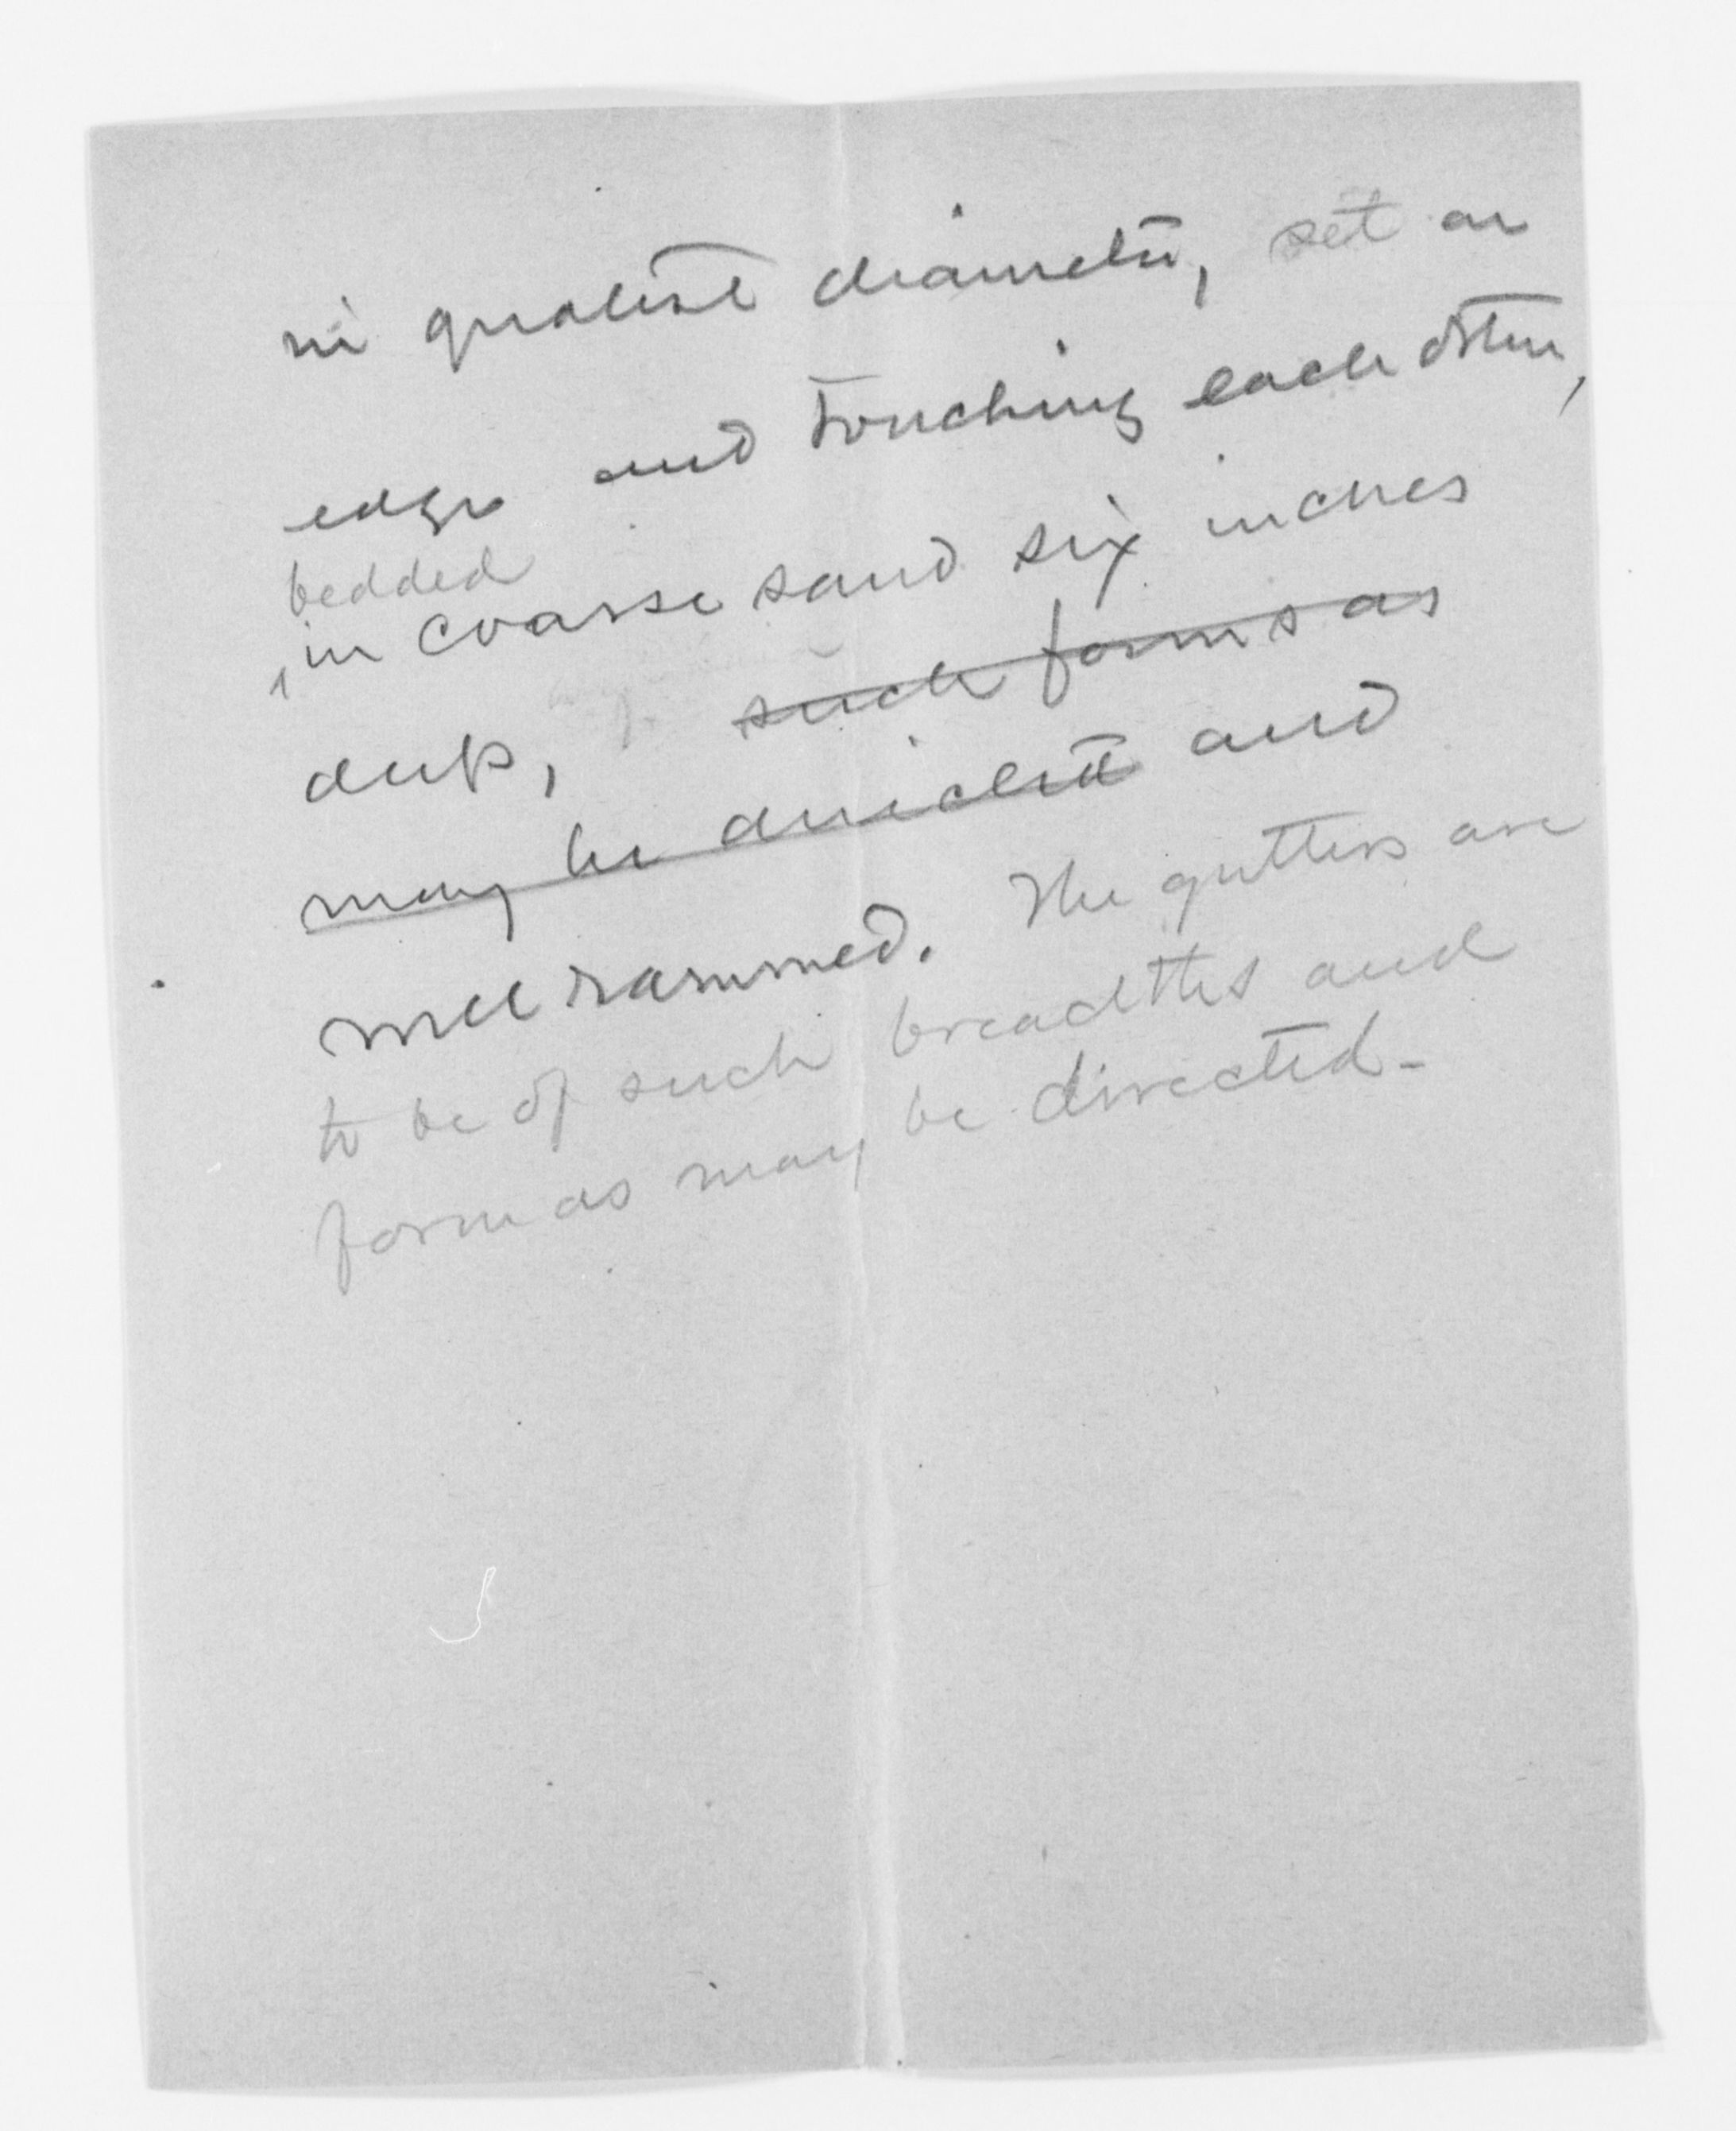 in greatest diameter, set on
edge and touching each other,
bedded
in coarse sand six inches
deep, such forms as
may be directed and
well rammed. The gutters are
to be of such breadths and
form as may be directed-